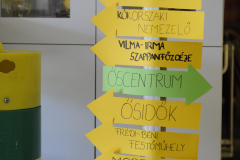 KŐKORSZAKI
NEMEZELŐ
VILMA-IRMA
SZAPPANFŐZDÉJE
ŐSCENTRUM
ŐSIDŐK
FRÉDI-BÉNI
FESTŐMŰHELY